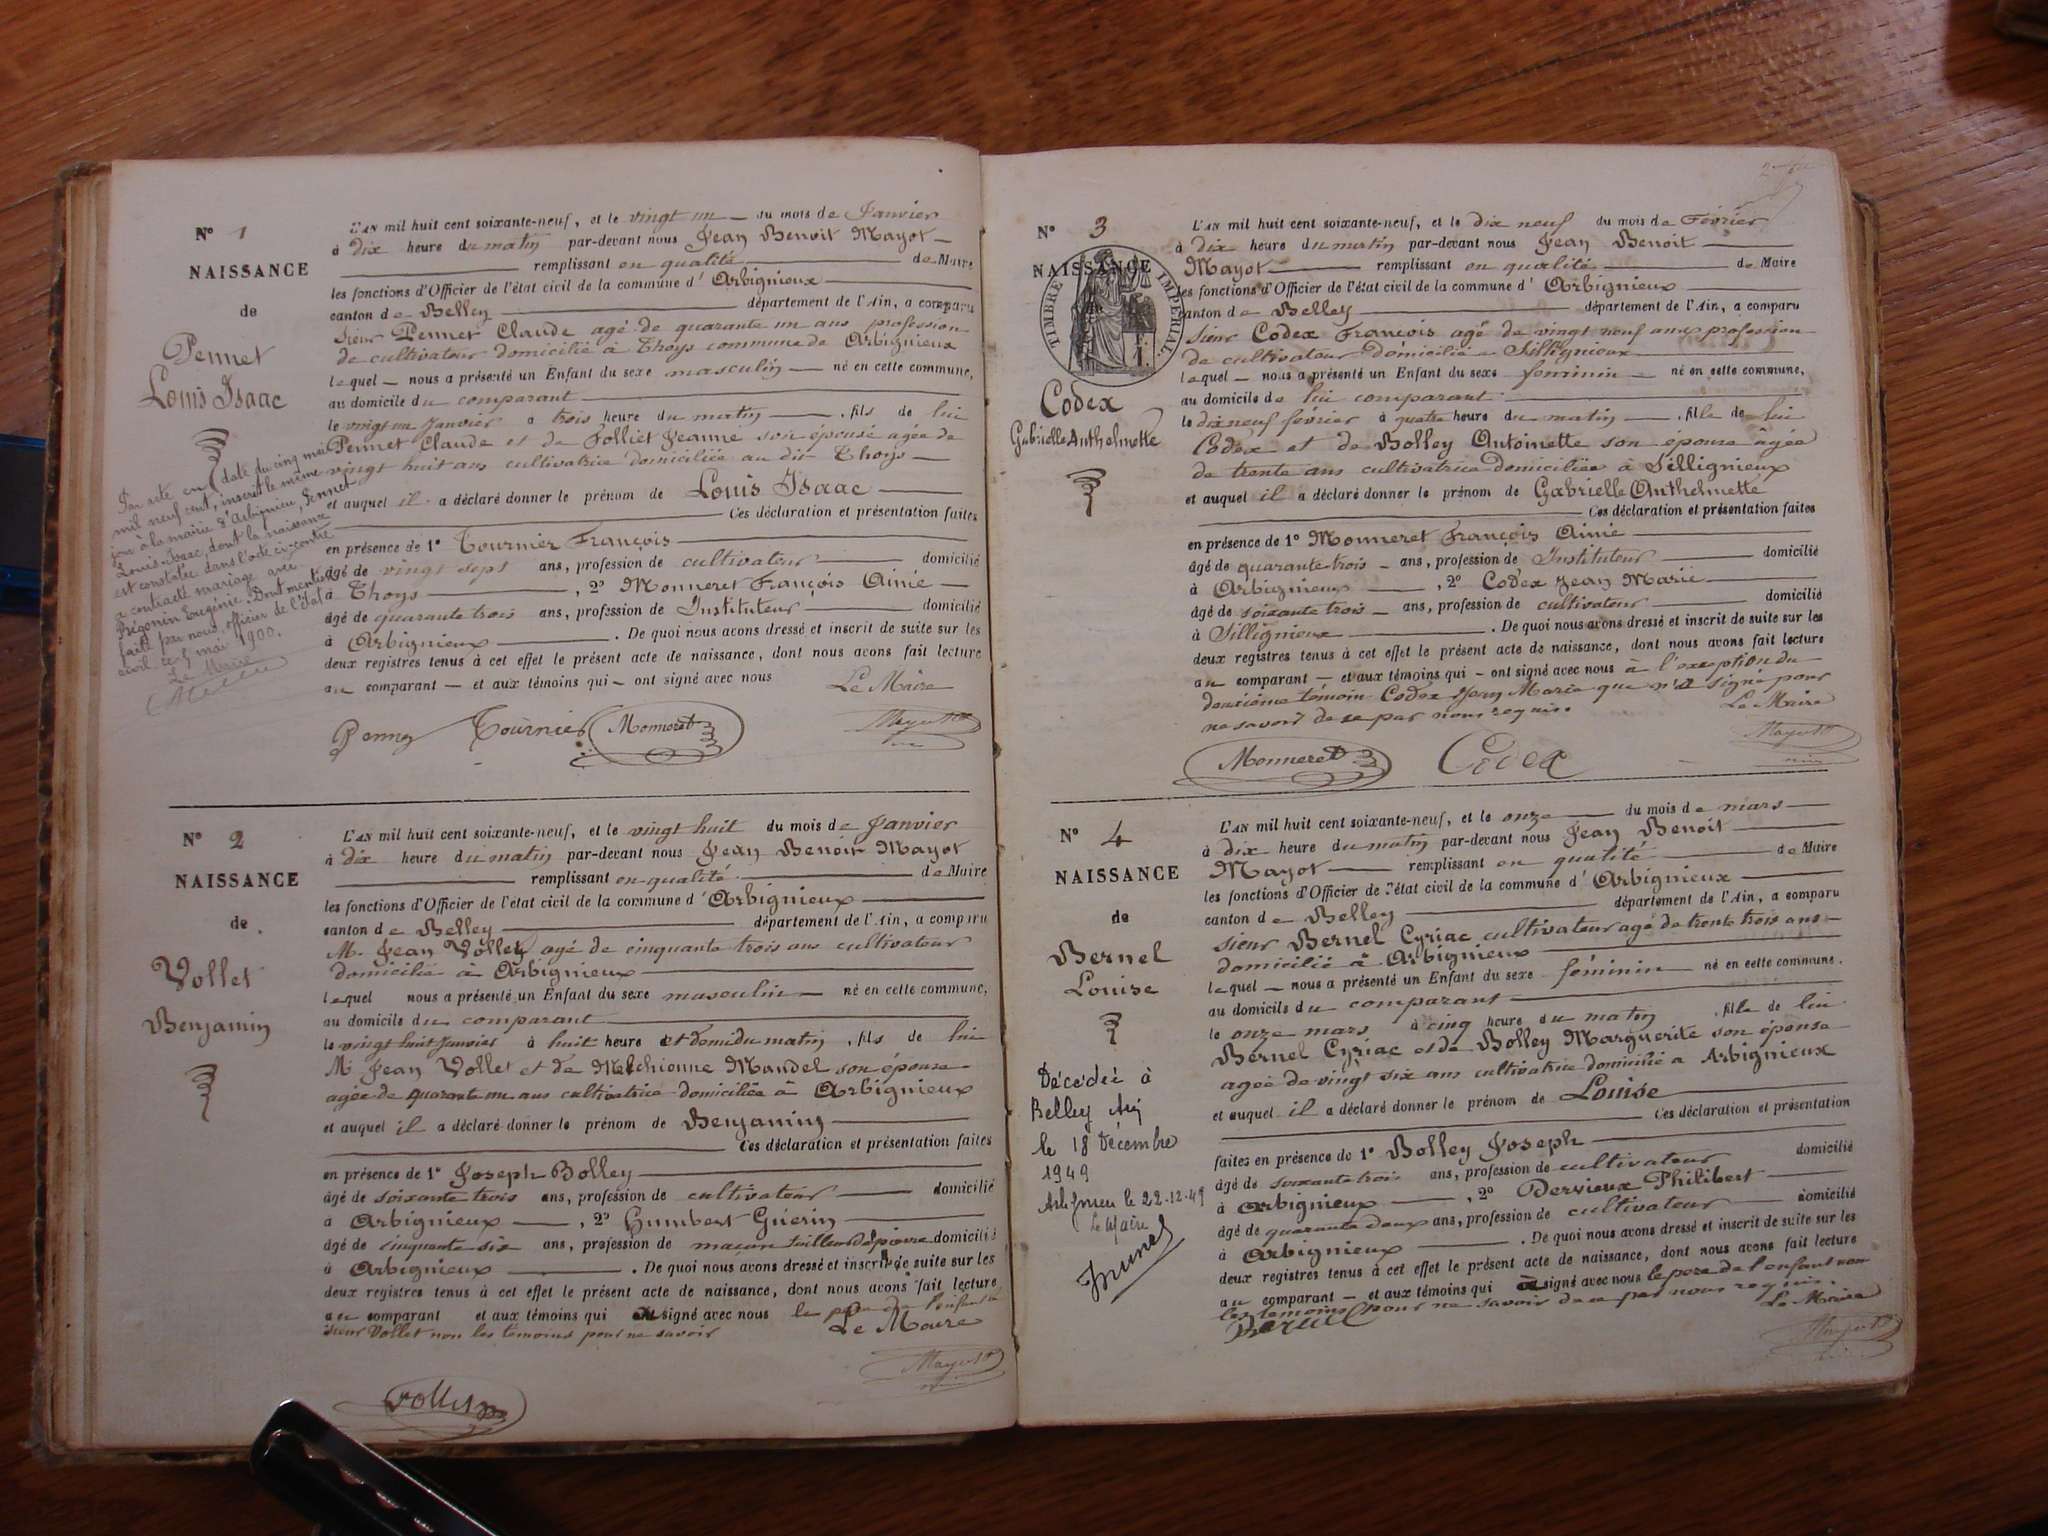 N° 1
NAISSANCE
de
Pennet
Louis Isaac
Par acte en date du cinq mai
mil neuf cent, inscrit le même
jour à la mairie d'Arbignieu, Pennet
Louis-Isaac, dont la naissance
est constatée dans l'acte ci-contre
a contracté mariage avec
Eugénie. Dont mention
faite par nous, officier de l'Etat
civil ce 5 mai 1900.
Le Maire
L'AN mil huit cent soixante-neuf, et le vingt un du mois de Janvier
à dix heure du matin par-devant nous Jean Benoit Mayot
remplissant en qualité de Maire
les fonctions d'Officier de l'état civil de la commune d'Arbignieux
canton de Belley département de l'Ain, a comparu
sieur Pennet Claude agé de quarante un ans profession
de cultivateur domicilié à Thoys commune de Arbignieux
lequel nous a présenté un Enfant du sexe masculin né en cette commune,
au domicile du comparant
le vingt un Janvier à trois heure du matin, fils de lui
Pennet Claude et de Folliet Jeanne son épouse agée de
vingt huit ans cultivatrice domiciliée au dit Thoys
et auquel il a déclaré donner le prénom de Louis Isaac
Ces déclaration et présentation faites
en présence de 1° Tournier François
âgé de vingt sept ans, profession de cultivateur domicilié
à Thoys, 2° Monneret François Ainié
âgé de quarante trois ans, profession de Instituteur domicilié
à Arbignieux. De quoi nous avons dressé et inscrit de suite sur les
deux registres tenus à cet effet le présent acte de naissance, dont nous avons fait lecture
au comparant et aux témoins qui ont signé avec nous Le Maire
Tournier Monneret Mayot
N° 2
NAISSANCE
de
Vollet
Benjamin
L'AN mil huit cent soixante-neuf, et le vingt huit du mois de Janvier
à dix heure du matin par-devant nous Jean Benoit Mayot
remplissant en qualité de Maire
les fonctions d'Officier de l'état civil de la commune d'Arbignieux
canton de Belley département de l'Ain, a comparu
M. Jean Vollet agé de cinquante trois ans cultivateur
domicilié à Arbignieux
lequel nous a présenté un Enfant du sexe masculin né en cette commune,
au domicile du comparant
le vingt huit Janvier à huit heure et demi du matin, fils de lui
M. Jean Vollet et de Melchionne Mandel son épouse
agée de quarante un ans cultivatrice domiciliée à Arbignieux
et auquel il a déclaré donner le prénom de Benjamin
Ces déclaration et présentation faites
en présence de 1° Joseph Bolley
âgé de soixante trois ans, profession de cultivateur domicilié
à Arbignieux, 2° Humbert Guérin
âgé de cinquante six ans, profession de maçon tailleur de pierre domicilié
à Arbignieux. De quoi nous avons dressé et inscrit de suite sur les
deux registres tenus à cet effet le présent acte de naissance, dont nous avons fait lecture
au comparant et aux témoins qui signé avec nous le père de l'enfant
sieur Vollet non les temoins pour ne savoir Le Maire
Mayot
Vollet
N° 3
NAISSANCE
TIMBRE IMPÉRIAL.
Codex
Gabrielle Anthelmette
L'AN mil huit cent soixante-neuf, et le dix neuf du mois de Février
à dix heure du matin par-devant nous Jean Benoit
Mayot remplissant en qualité de Maire
les fonctions d'Officier de l'état civil de la commune d'Arbignieux
canton de Belley département de l'Ain, a comparu
sieur Codex François agé de vingt neuf ans profession
de cultivateur domicilié a Sillignieux
lequel nous a présenté un Enfant du sexe féminin né en cette commune,
au domicile de lui comparant
le dix neuf février à quatre heure du matin, fille de lui
Codex et de Bolley Antoinette son épouse âgée
de trente ans cultivatrice domiciliée à Sillignieux
et auquel il a déclaré donner le prénom de Gabrielle Anthelmette
Ces déclaration et présentation faites
en présence de 1° Monneret François Ainié
âgé de quarante trois ans, profession de Instituteur domicilié
à Arbignieux, 2° Codex Jean Marie
âgé de soixante trois ans, profession de cultivateur domicilié
à Sillignieux. De quoi nous avons dressé et inscrit de suite sur les
deux registres tenus à cet effet le présent acte de naissance, dont nous avons fait lecture
au comparant et aux témoins qui ont signé avec nous à l'exception du
deuxième témoin Codex Jean Marie que n'a signé pour
ne savoir de ce par nous requis. Le Maire
Monneret Codex Mayot
N° 4
NAISSANCE
de
Bernel
Louise
Décédée à
Belley Ain
le 18 Décembre
1949
Arbignieu le 22-12-49
Le Maire
L'AN mil huit cent soixante-neuf, et le onze du mois de mars
à dix heure du matin par-devant nous Jean Benoit
Mayot remplissant en qualité de Maire
les fonctions d'Officier de l'état civil de la commune d'Arbignieux
canton de Belley département de l'Ain, a comparu
sieur Bernel Cyriac cultivateur agé de trente trois ans
domicilié à Arbignieux
lequel nous a présenté un Enfant du sexe féminin né en cette commune.
au domicile du comparant
le onze mars à cinq heure du matin, fille de lui
Bernel Cyriac et de Bolley Marguerite son épouse
agée de vingt six ans cultivatrice domicilié a Arbignieux
et auquel il a déclaré donner le prénom de Louise
Ces déclaration et présentation
faites en présence de 1° Bolley Joseph
âgé de soixante trois ans, profession de cultivateur domicilié
à Arbignieux, 2° Dervieux Philibert
âgé de quarante deux ans, profession de cultivateur domicilié
à Arbignieux. De quoi nous avons dressé et inscrit de suite sur les
deux registres tenus à cet effet le présent acte de naissance, dont nous avons fait lecture
au comparant et aux témoins qui signé avec nous le père de l'enfant non
les temoins pour ne savoir de ce par nous requis. Le Maire
Bernel Mayot